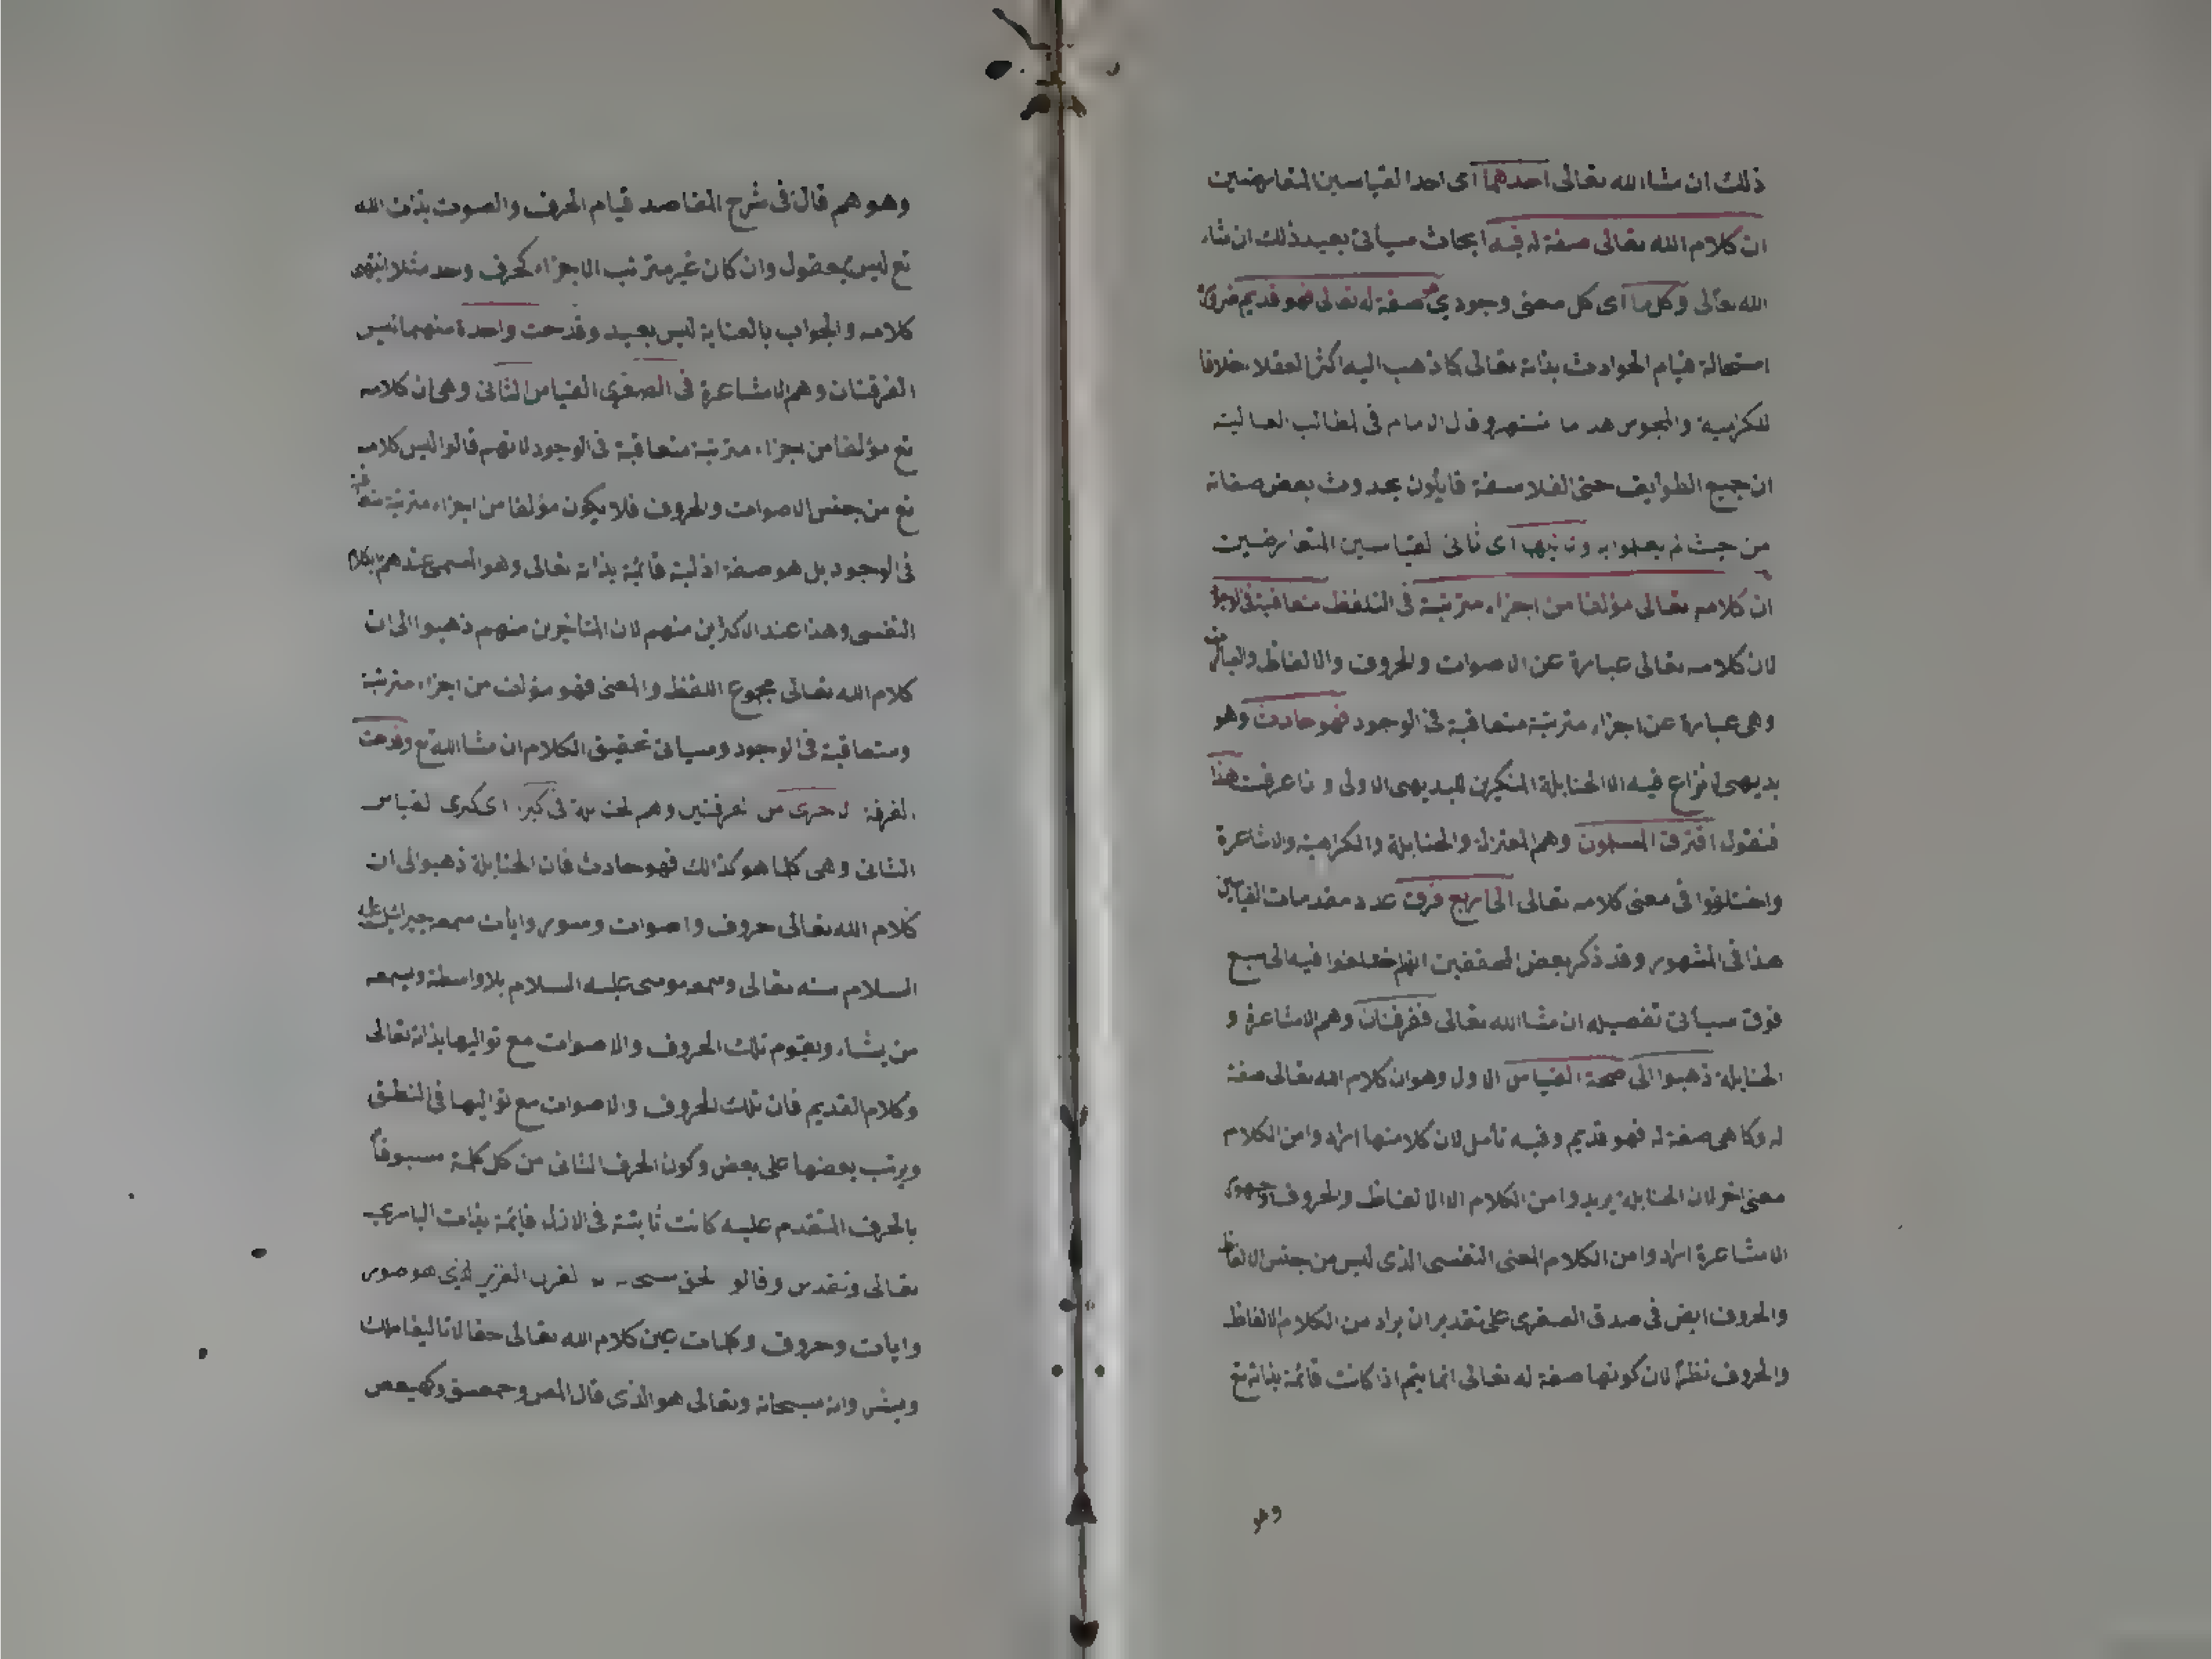 ذلك ان شاء الله تعالى احدهما اى احد القياسين المتعارضين
ان كلام الله تعالى صفة له فيه ابحاث سيأتى بعيد ذلك ان شاء
الله تعالى وكل ما اى كل معنى وجودى هو صفة له تعالى فهو قديم ضرورة
استحالة قيام الحوادث بذاته تعالى كما ذهب اليه اكثر العقلاء خلافا
للكرامية والمجوس هذا ما اشتهر وقال الامام فى المطالب العالية
ان جميع الطوايف حتى الفلاسفة قايلون بحدوث بعض صفاته
من حيث لم يعلموا به وثانيهما اى ثانى القياسين المتعارضين
ان كلامه تعالى مؤلفا من اجزاء مترتبة فى التلفظ متعاقبة فى الوجود
لان كلامه تعالى عبارة عن الاصوات والحروف والالفاظ والعبارات
وهى عبارة عن اجزاء مترتبة متعاقبة فى الوجود فهو حادث وهو
بديهى لا نزاع فيه الا الحنابلة المنكرين للبديهى الاولى واذا عرفت هذا
فنقول افترق المسلمون وهم المعتزلة والحنابلة والكرامية والاشاعرة
واختلفوا فى معنى كلامه تعالى الى اربع فرق عدد مقدمات القياسين
هذا فى المشهور وقد ذكر بعض المحققين انهم اختلفوا فيه الى سبع
فرق سيأتى تفصيله ان شاء الله تعالى ففرقتان وهم الاشاعرة و
الحنابلة ذهبوا الى صحة القياس الاول وهو ان كلام الله تعالى صفة
له وكلما هى صفة له فهو قديم وفيه تأمل لان كلا منها ارادوا من الكلام
معنى اخر لان الحنابلة يريدوا من الكلام الا الالفاظ والحروف وجمهور
الاشاعرة ارادوا من الكلام المعنى النفسى الذى ليس من جنس الالفاظ
والحروف ايض فى صدق الصغرى على تقدير ان يراد من الكلام الالفاظ
والحروف نظرا لان كونها صفة له تعالى انما يتم اذا كانت قائمة بذاته تع
وهو
وهو هم قال فى شرح المقاصد قيام الحرف والصوت بذات الله
تع ليس بمعقول وان كان غير مترتب الاجزاء كحرف واحد مثلا انتهى
كلامه والجواب بالعناية ليس ببعيد وقدحت واحدة منهما ليس
الفرقتان وهم الاشاعرة فى الصغرى القياس الثانى وهى ان كلامه
تع مؤلفا من اجزاء مترتبة متعاقبة فى الوجود لانهم قالوا ليس كلامه
تع من جنس الاصوات والحروف فلا يكون مؤلفا من اجزاء مترتبة متعاقبة
فى الوجود بل هو صفة ازلية قائمة بذاته تعالى وهو المسمى عندهم بكلام
النفسى وهذا عند الاكثرين منهم لان المتأخرين منهم ذهبوا الى ان
كلام الله تعالى مجموع اللفظ والمعنى فهو مؤلف من اجزاء مترتبة
ومتعاقبة فى الوجود وسيأتى تحقيق الكلام ان شا الله تع وقدحت
الفرقة الاخرى من الفرقتين وهم الحنابلة فى كبراه اى كبرى القياس
الثانى وهى كلما هو كذالك فهو حادث فان الحنابلة ذهبوا الى ان
كلام الله تعالى حروف واصوات وسور وايات سمعه جبرائيل عليه
السلام منه تعالى وسمعه موسى عليه السلام بلا واسطة ويسمعه
من يشاء ويقوم تلك الحروف والاصوات مع تواليها بذاته تعالى
وكلام القديم فان تلك الحروف والاصوات مع تواليها فى النطق
ويرتب بعضها على بعض وكون الحرف الثانى من كل كلمة مسبوقاً
بالحرف المتقدم عليه كانت ثابتة فى الازل قائمة بذات البارى
تعالى وتقدس وقالو الحق سبحانه القران العزيز الذى هو صور
وايات وحروف وكلمات عين كلام الله تعالى حقا لا تاليف ملك
وبشر وانه سبحانه وتعالى هو الذى قال المص وحمعسق وكهيعص